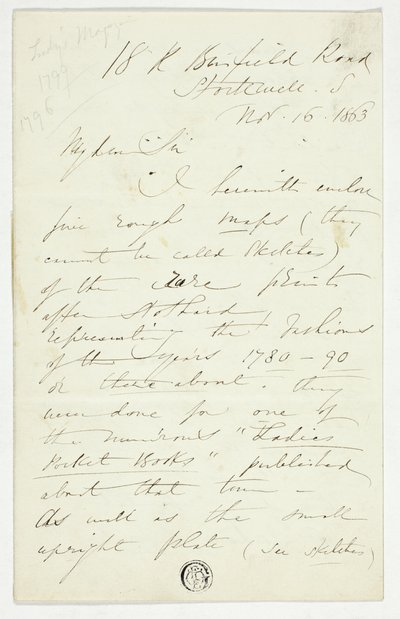 Lady's Magaz
1799
1796
18 K Binfield Road
Stockwell. S
Nov. 16. 1863
My dear Sir
I herewith enclose
five rough maps (they
cannot be called Sketches)
of the rare prints
after Stothard,
representing the Fashions
of the years 1780 - 90
or thereabout. they
were done for one of
the numerous "Ladies
Pocket Books" published
about that time -
As well as the small
upright plate (see sketches)